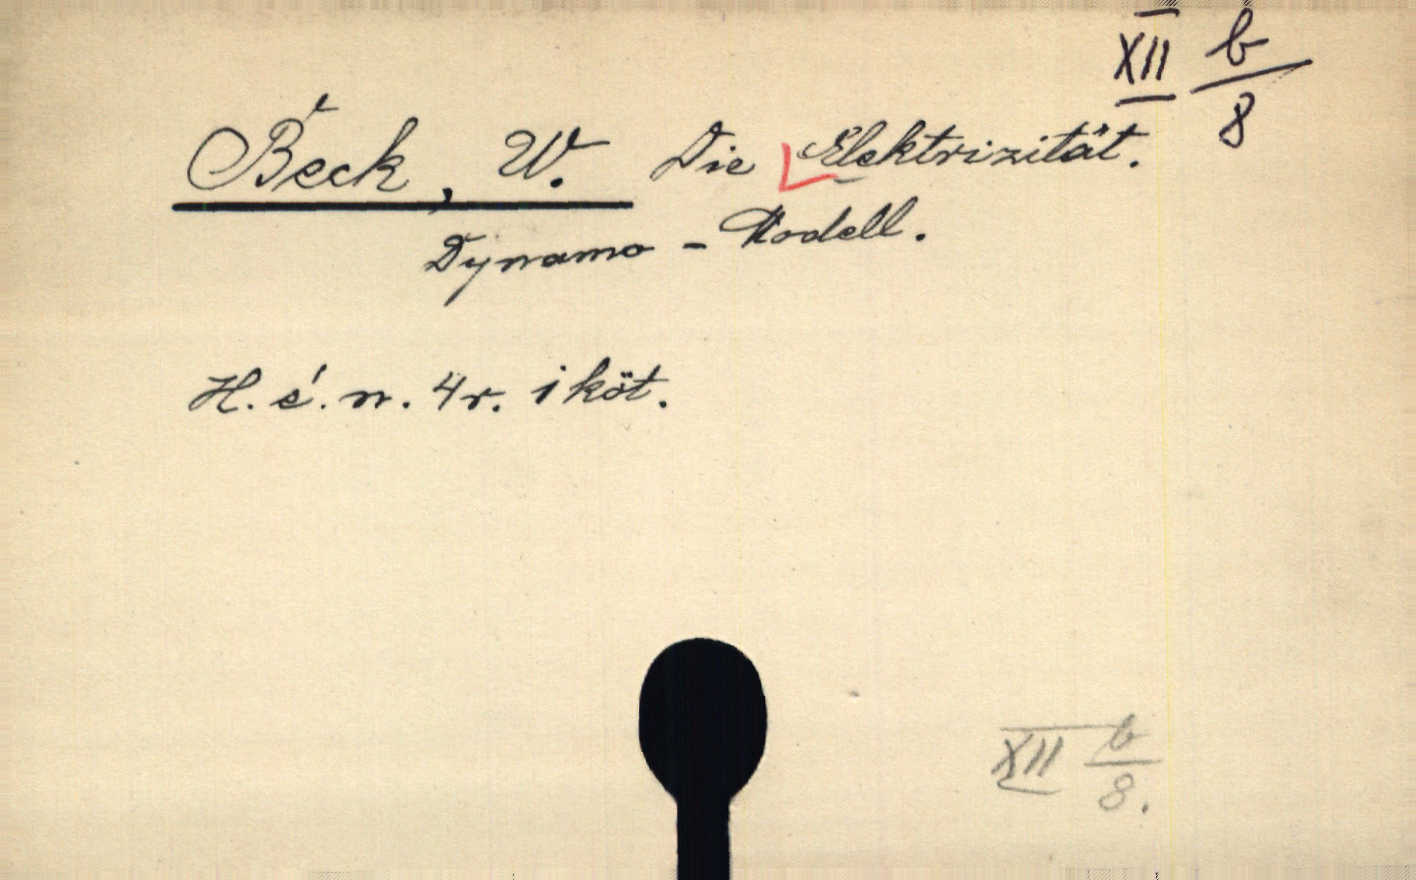 XII b/8
Beck, W. Die Elektrizität.
Dynamo - Modell.
H. é. n. 4r. 1 köt.
XII b/8.